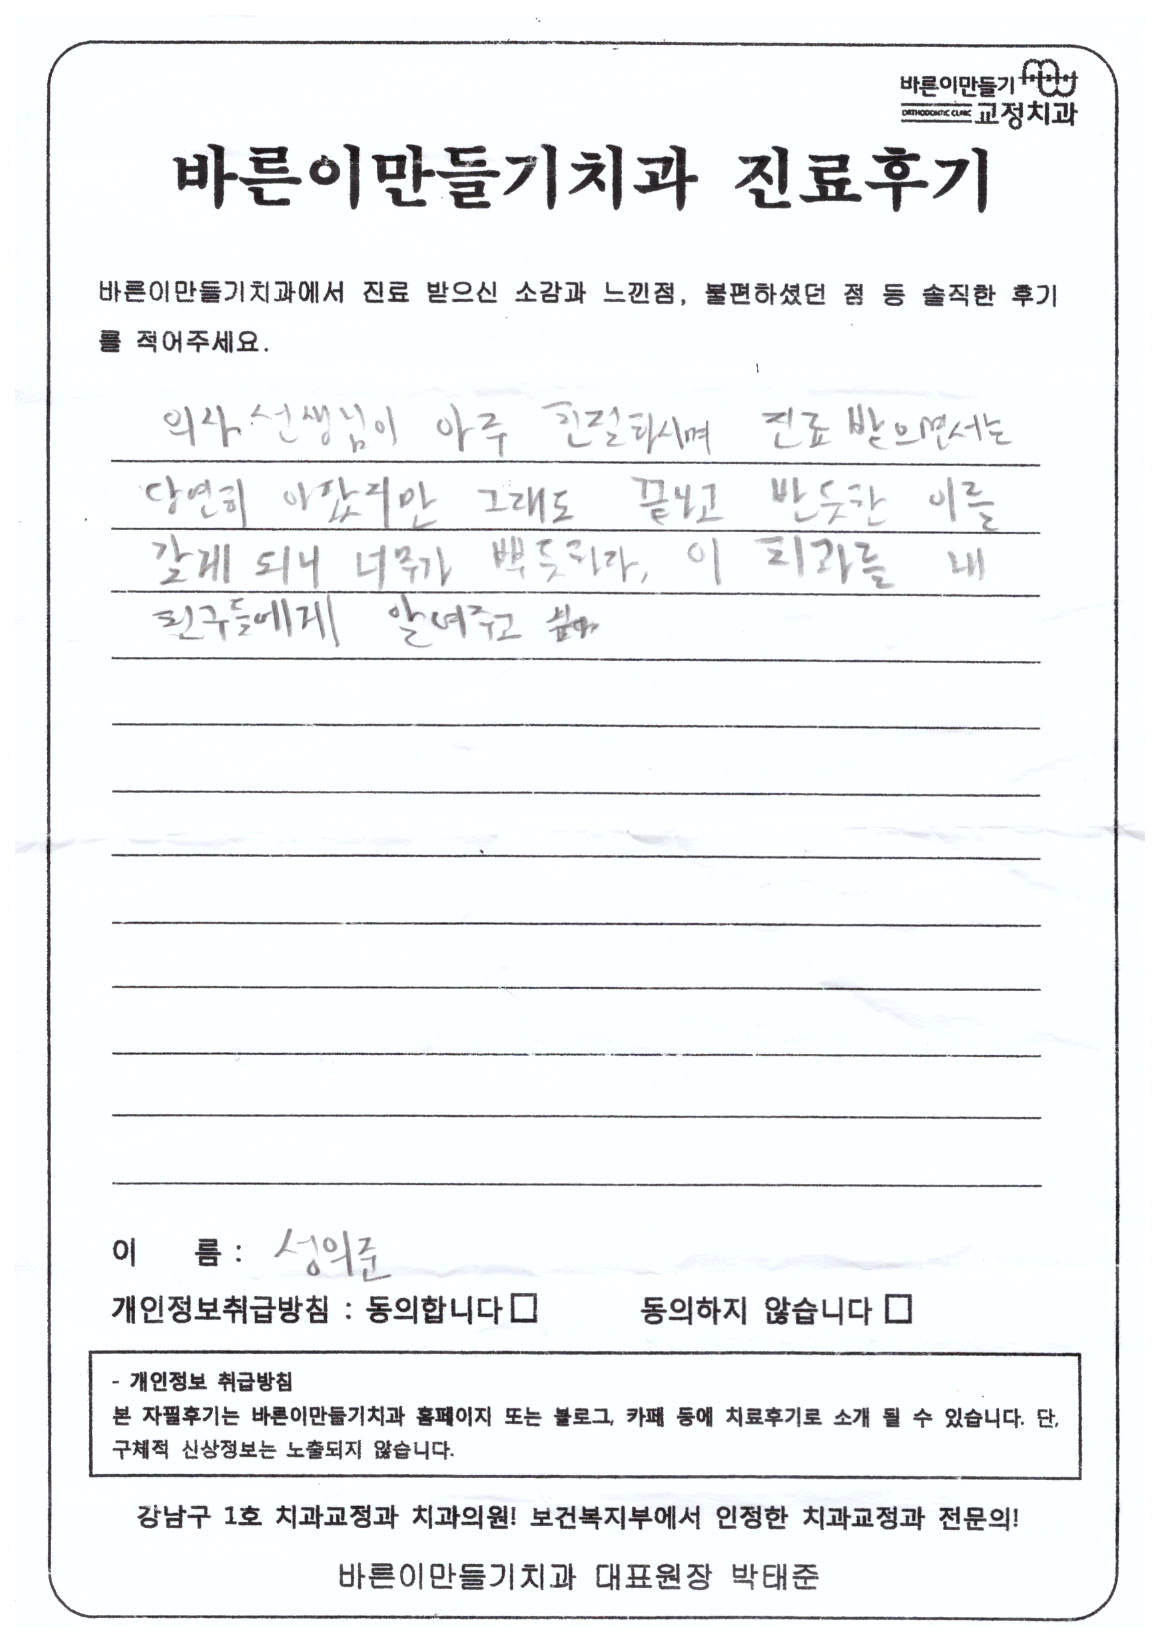 바른이만들기
ORTHODONTIC CLINIC 교정치과
바른이만들기치과 진료후기
바른이만들기치과에서 진료 받으신 소감과 느낀점, 불편하셨던 점 등 솔직한 후기
를 적어주세요.
의사 선생님이 아주 친절하시며 진료 받으면서는
당연히 아팠지만 그래도 끝내고 반듯한 이를
갖게 되니 너무가 뿌듯하다, 이 치과를 내
친구들에게 알려주고
이 름 : 성의준
개인정보취급방침 : 동의합니다□ 동의하지 않습니다□
- 개인정보 취급방침
본 자필후기는 바른이만들기치과 홈페이지 또는 블로그, 카페 등에 치료후기로 소개 될 수 있습니다. 단,
구체적 신상정보는 노출되지 않습니다.
강남구 1호 치과교정과 치과의원! 보건복지부에서 인정한 치과교정과 전문의!
바른이만들기치과 대표원장 박태준